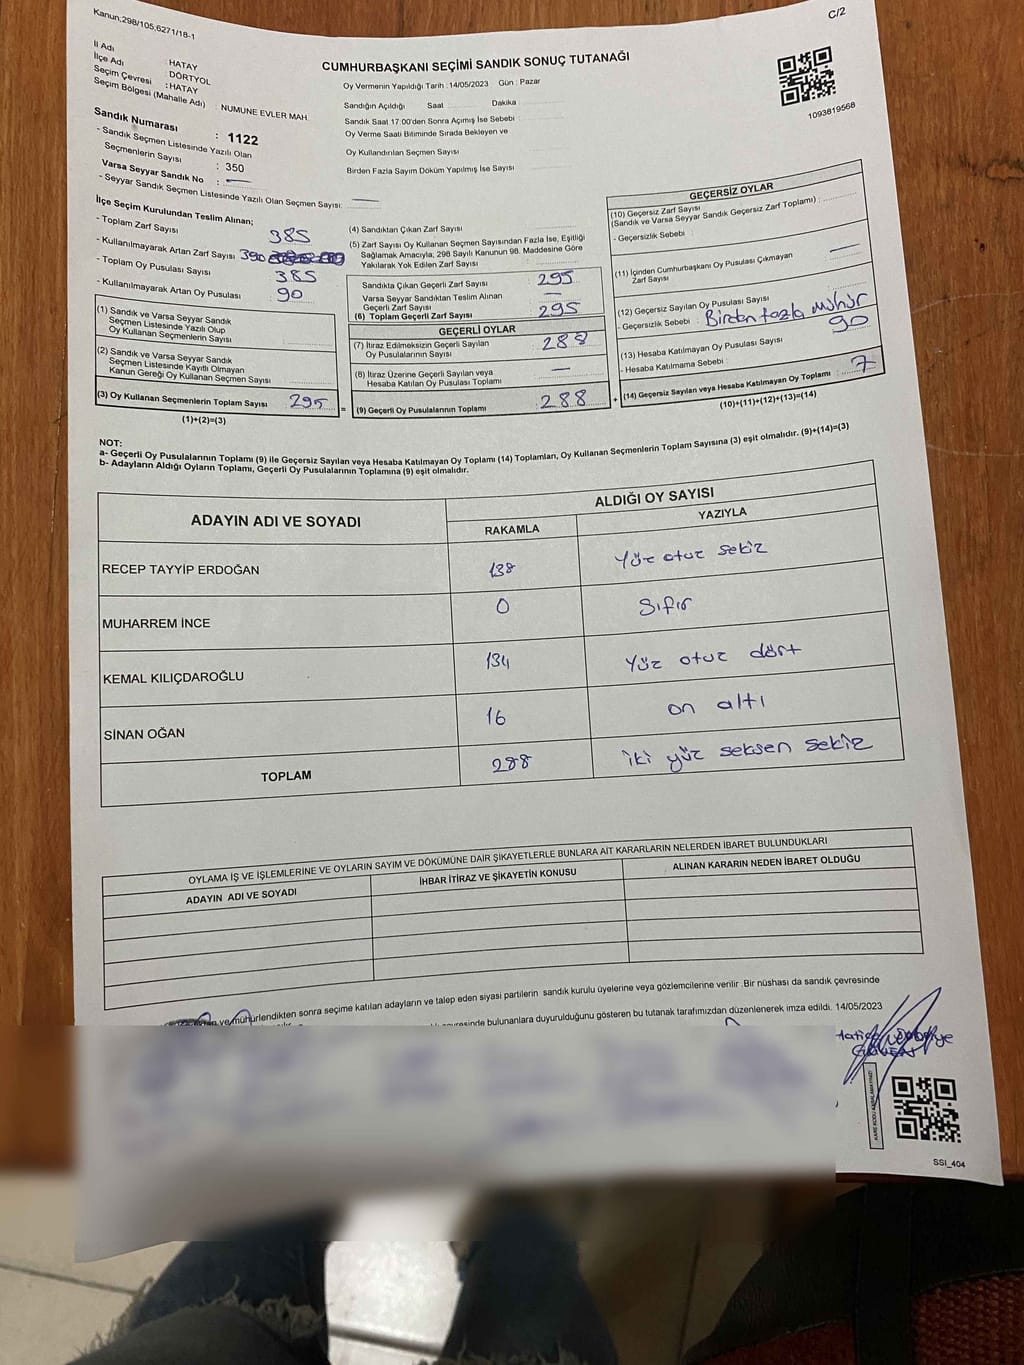 Kanun;298/105,6271/18-1
C/2
İl Adı : HATAY
İlçe Adı : DÖRTYOL
Seçim Çevresi : HATAY
Seçim Bölgesi (Mahalle Adı) : NUMUNE EVLER MAH.
CUMHURBAŞKANI SEÇİMİ SANDIK SONUÇ TUTANAĞI
Oy Vermenin Yapıldığı Tarih : 14/05/2023 Gün : Pazar
Sandığın Açıldığı Saat Dakika
Sandık Saat 17:00'den Sonra Açımış İse Sebebi :
Oy Verme Saati Bitiminde Sırada Bekleyen ve
Oy Kullandırılan Seçmen Sayısı
Birden Fazla Sayım Döküm Yapılmış İse Sayısı
1093819568
Sandık Numarası : 1122
- Sandık Seçmen Listesinde Yazılı Olan
Seçmenlerin Sayısı : 350
Varsa Seyyar Sandık No : —
- Seyyar Sandık Seçmen Listesinde Yazılı Olan Seçmen Sayısı: —
İlçe Seçim Kurulundan Teslim Alınan;
- Toplam Zarf Sayısı 385
- Kullanılmayarak Artan Zarf Sayısı 390
- Toplam Oy Pusulası Sayısı 385
- Kullanılmayarak Artan Oy Pusulası 90
(1) Sandık ve Varsa Seyyar Sandık
Seçmen Listesinde Yazılı Olup
Oy Kullanan Seçmenlerin Sayısı
(2) Sandık ve Varsa Seyyar Sandık
Seçmen Listesinde Kayıtlı Olmayan
Kanun Gereği Oy Kullanan Seçmen Sayısı
(3) Oy Kullanan Seçmenlerin Toplam Sayısı 295
(1)+(2)=(3)
(4) Sandıktan Çıkan Zarf Sayısı
(5) Zarf Sayısı Oy Kullanan Seçmen Sayısından Fazla İse, Eşitliği
Sağlamak Amacıyla; 298 Sayılı Kanunun 98. Maddesine Göre
Yakılarak Yok Edilen Zarf Sayısı
Sandıkta Çıkan Geçerli Zarf Sayısı 295
Varsa Seyyar Sandıktan Teslim Alınan
Geçerli Zarf Sayısı —
(6) Toplam Geçerli Zarf Sayısı 295
GEÇERLİ OYLAR
(7) İtiraz Edilmeksizin Geçerli Sayılan
Oy Pusulalarının Sayısı 288
(8) İtiraz Üzerine Geçerli Sayılan veya
Hesaba Katılan Oy Pusulası Toplamı —
= (9) Geçerli Oy Pusulalarının Toplamı 288
GEÇERSİZ OYLAR
(10) Geçersiz Zarf Sayısı
(Sandık ve Varsa Seyyar Sandık Geçersiz Zarf Toplamı) :
- Geçersizlik Sebebi :
(11) İçinden Cumhurbaşkanı Oy Pusulası Çıkmayan
Zarf Sayısı —
(12) Geçersiz Sayılan Oy Pusulası Sayısı
- Geçersizlik Sebebi : Birden fazla mühür
90
(13) Hesaba Katılmayan Oy Pusulası Sayısı
- Hesaba Katılmama Sebebi :
+ (14) Geçersiz Sayılan veya Hesaba Katılmayan Oy Toplamı : 7
(10)+(11)+(12)+(13)=(14)
NOT:
a- Geçerli Oy Pusulalarının Toplamı (9) ile Geçersiz Sayılan veya Hesaba Katılmayan Oy Toplamı (14) Toplamları, Oy Kullanan Seçmenlerin Toplam Sayısına (3) eşit olmalıdır. (9)+(14)=(3)
b- Adayların Aldığı Oyların Toplamı, Geçerli Oy Pusulalarının Toplamına (9) eşit olmalıdır.
ADAYIN ADI VE SOYADI ALDIĞI OY SAYISI
RAKAMLA YAZIYLA
RECEP TAYYİP ERDOĞAN 138 Yüz otuz sekiz
MUHARREM İNCE 0 Sıfır
KEMAL KILIÇDAROĞLU 134 Yüz otuz dört
SİNAN OĞAN 16 on altı
TOPLAM 288 iki yüz seksen sekiz
OYLAMA İŞ VE İŞLEMLERİNE VE OYLARIN SAYIM VE DÖKÜMÜNE DAİR ŞİKAYETLERLE BUNLARA AİT KARARLARIN NELERDEN İBARET BULUNDUKLARI
ADAYIN ADI VE SOYADI İHBAR İTİRAZ VE ŞİKAYETİN KONUSU ALINAN KARARIN NEDEN İBARET OLDUĞU
ve mühürlendikten sonra seçime katılan adayların ve talep eden siyasi partilerin sandık kurulu üyelerine veya gözlemcilerine verilir .Bir nüshası da sandık çevresinde
bulunanlara duyurulduğunu gösteren bu tutanak tarafımızdan düzenlenerek imza edildi. 14/05/2023
SSI_404